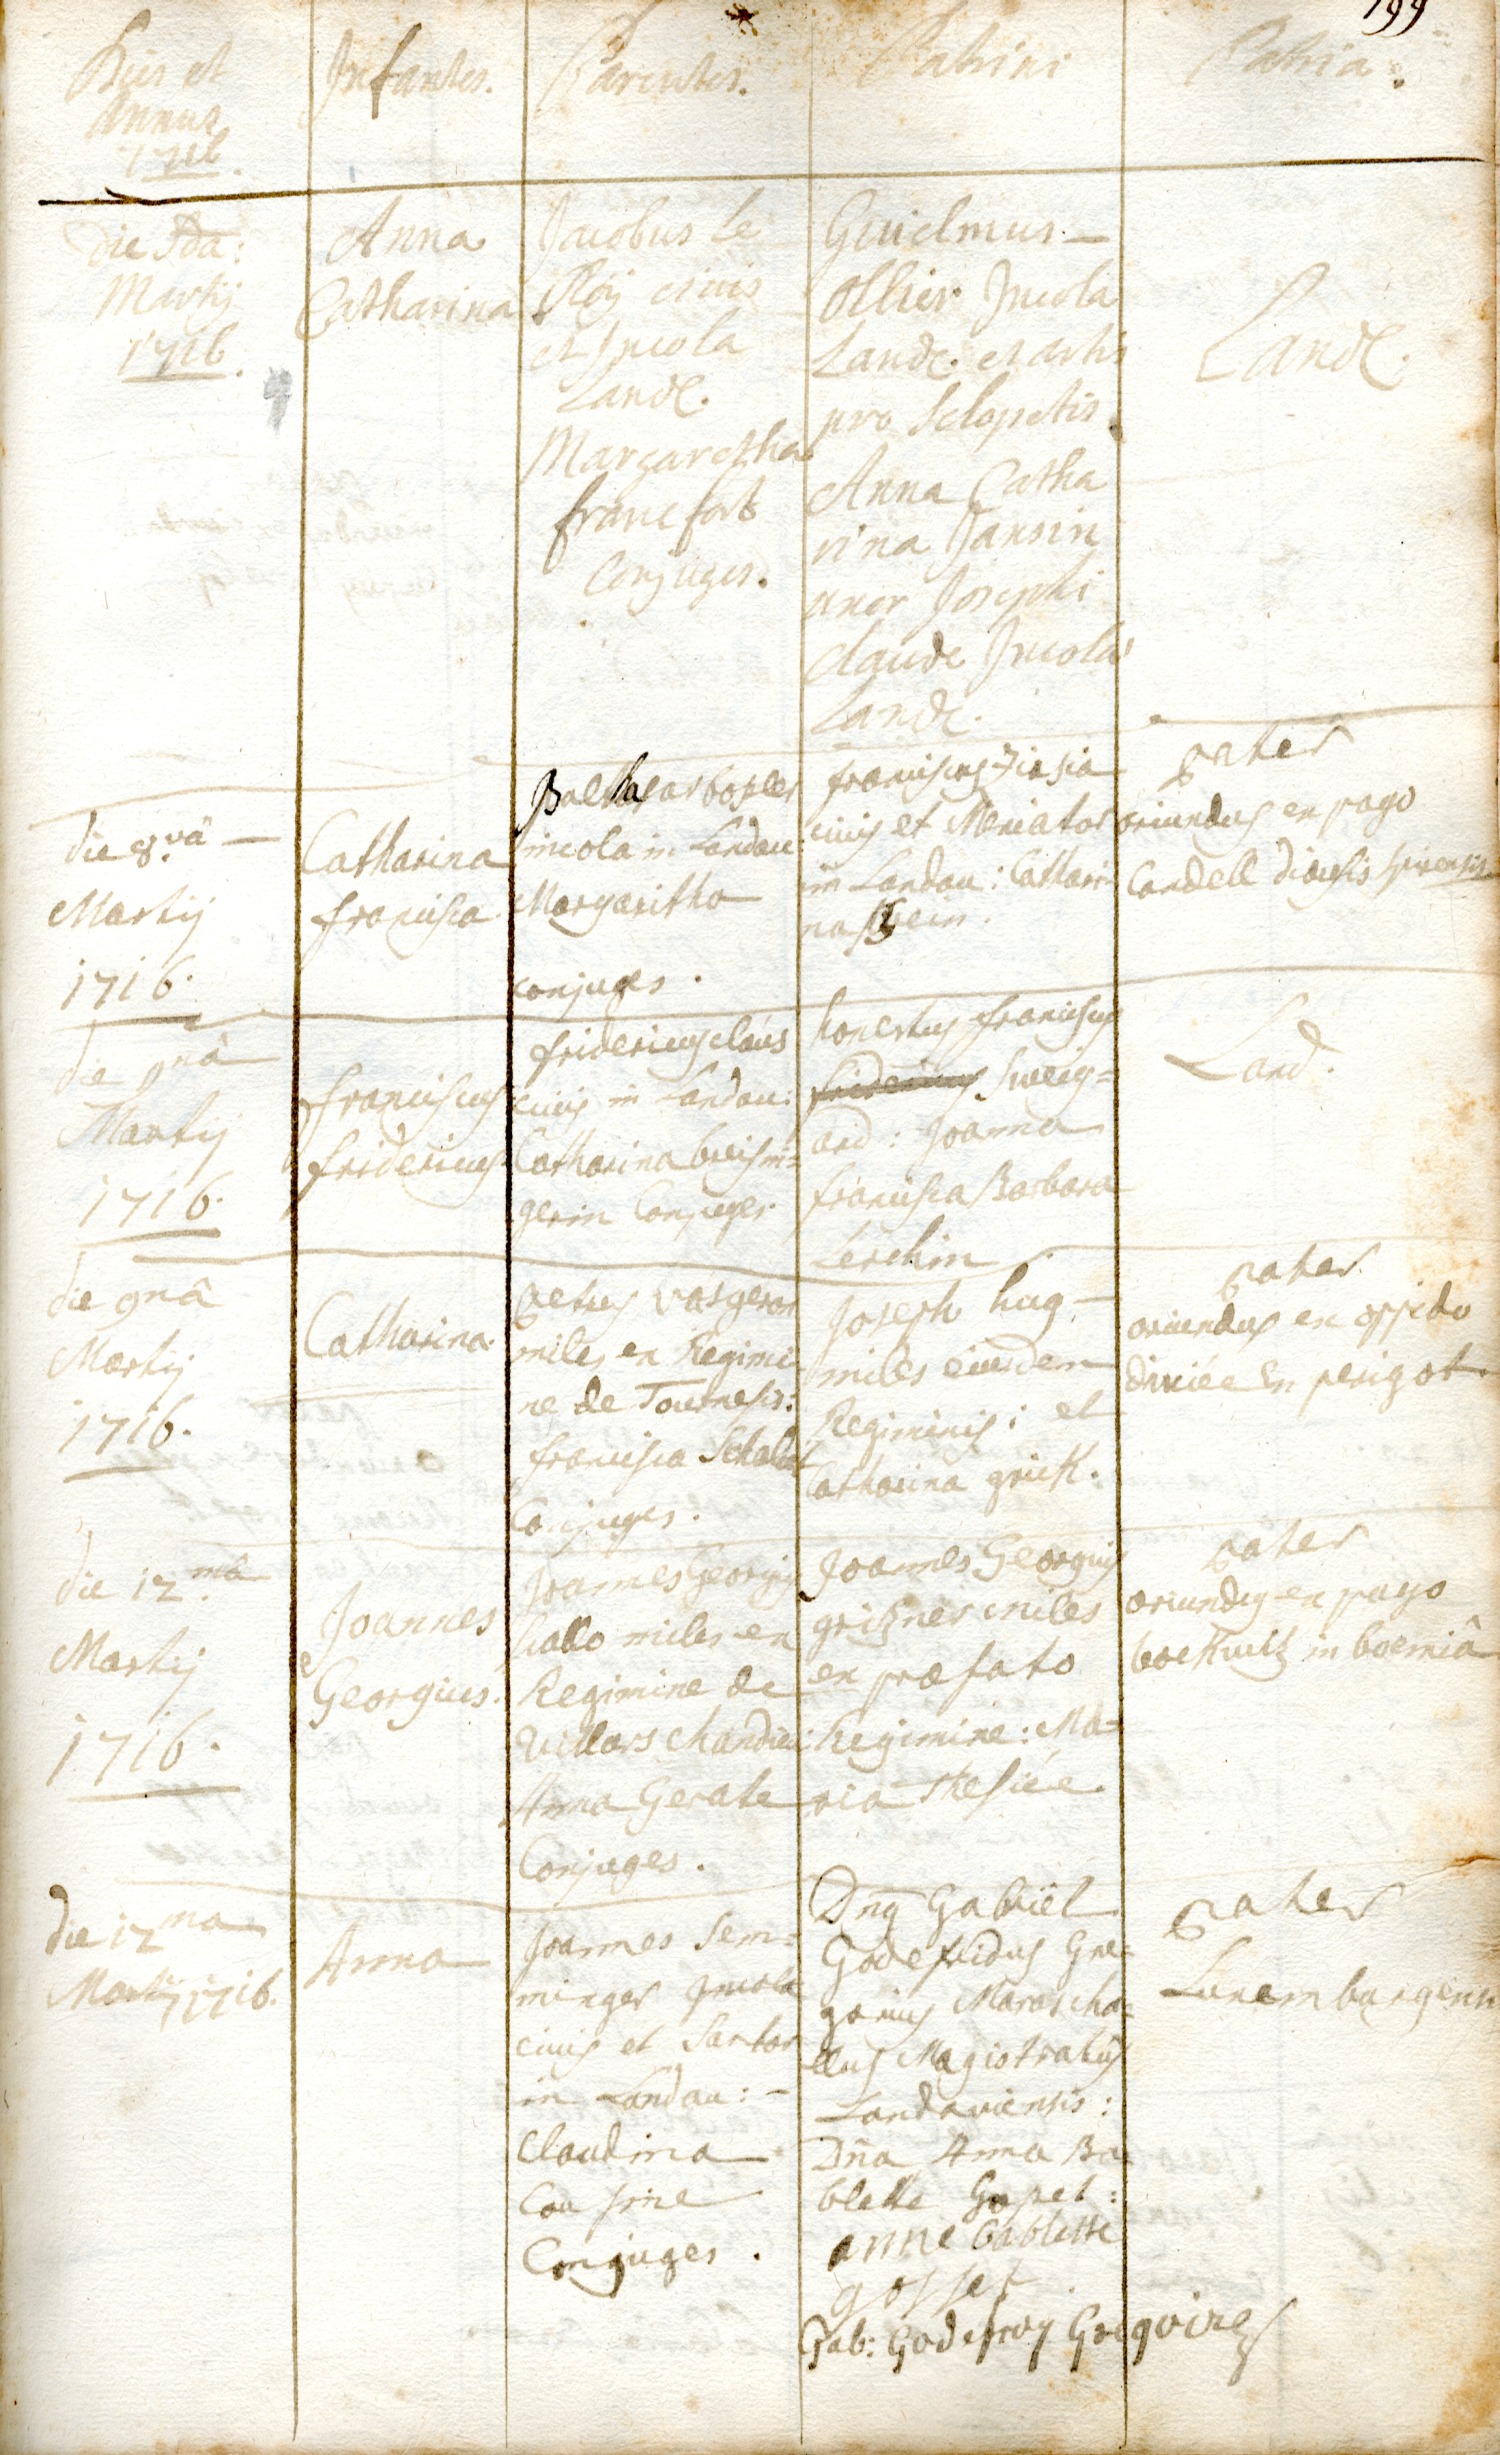 199
Dies et
Annus
1716.
Infantes.
Parentes.
Patrini
Patria.
die 8va:
Martij
1716.
Anna
Catharina
Jacobus Le
Roÿ civis
et Incola
Land.
Margaretha
francfort
Conjuges.
Guielmus
Ollier Incola
Land. et artis
pro sclopetis.
Anna Catha
rina Jansin
uxor Josephi
claude Incolae
Land.
Land.
die 8.vâ
Martij
1716.
Catharina
francisca.
Balthasar
incola in Landau
Margaritha
conjuges.
franciscus
civis et Mercator
in Landau: Cathari
na
pater
oriundus ex pago
Candell diocesis spirensis
die 9nâ
Martij
1716.
franciscus
fridericus.
fridericus claus
civis in Landau:
Catharina
gerin Conjuges.
honestus franciscus
fridericus sweig=
ard: Joanna
francisca Barbara
Lerchin
Land.
die 9nâ
Martij
1716.
Catharina.
petrus vasgeron
miles ex Regimi
ne de Tournesis:
francisca
Conjuges.
Joseph hug
miles eiusdem
Regiminis: et
Catharina grick.
pater
oriundus ex oppido
en perigot.
die 12.ma
Martij
1716.
Joannes
Georgius.
Joannes Georgius
hallo miles ex
Regimine de
Villars chandieu:
Anna Gerate
Conjuges.
Joannes Georgius
grißner miles
ex praefato
Regimine: Ma=
ria Thesiée.
pater
oriundus ex pago
in boemiâ
die 12ma
Martij 1716.
Anna
Joannes Sem=
minger Incola
civis et Sartor
in Landau:
Claudina
Cousine
Conjuges.
Dnus Gabriël
Godefridus Gre=
gorius Marescha=
llus Magistratûs
Landaviensis:
Dña Anna Ba
blette Gosset:
anne bablette
gosset
Gab: Godefroy Gregoire
pater
Luxemburgensis